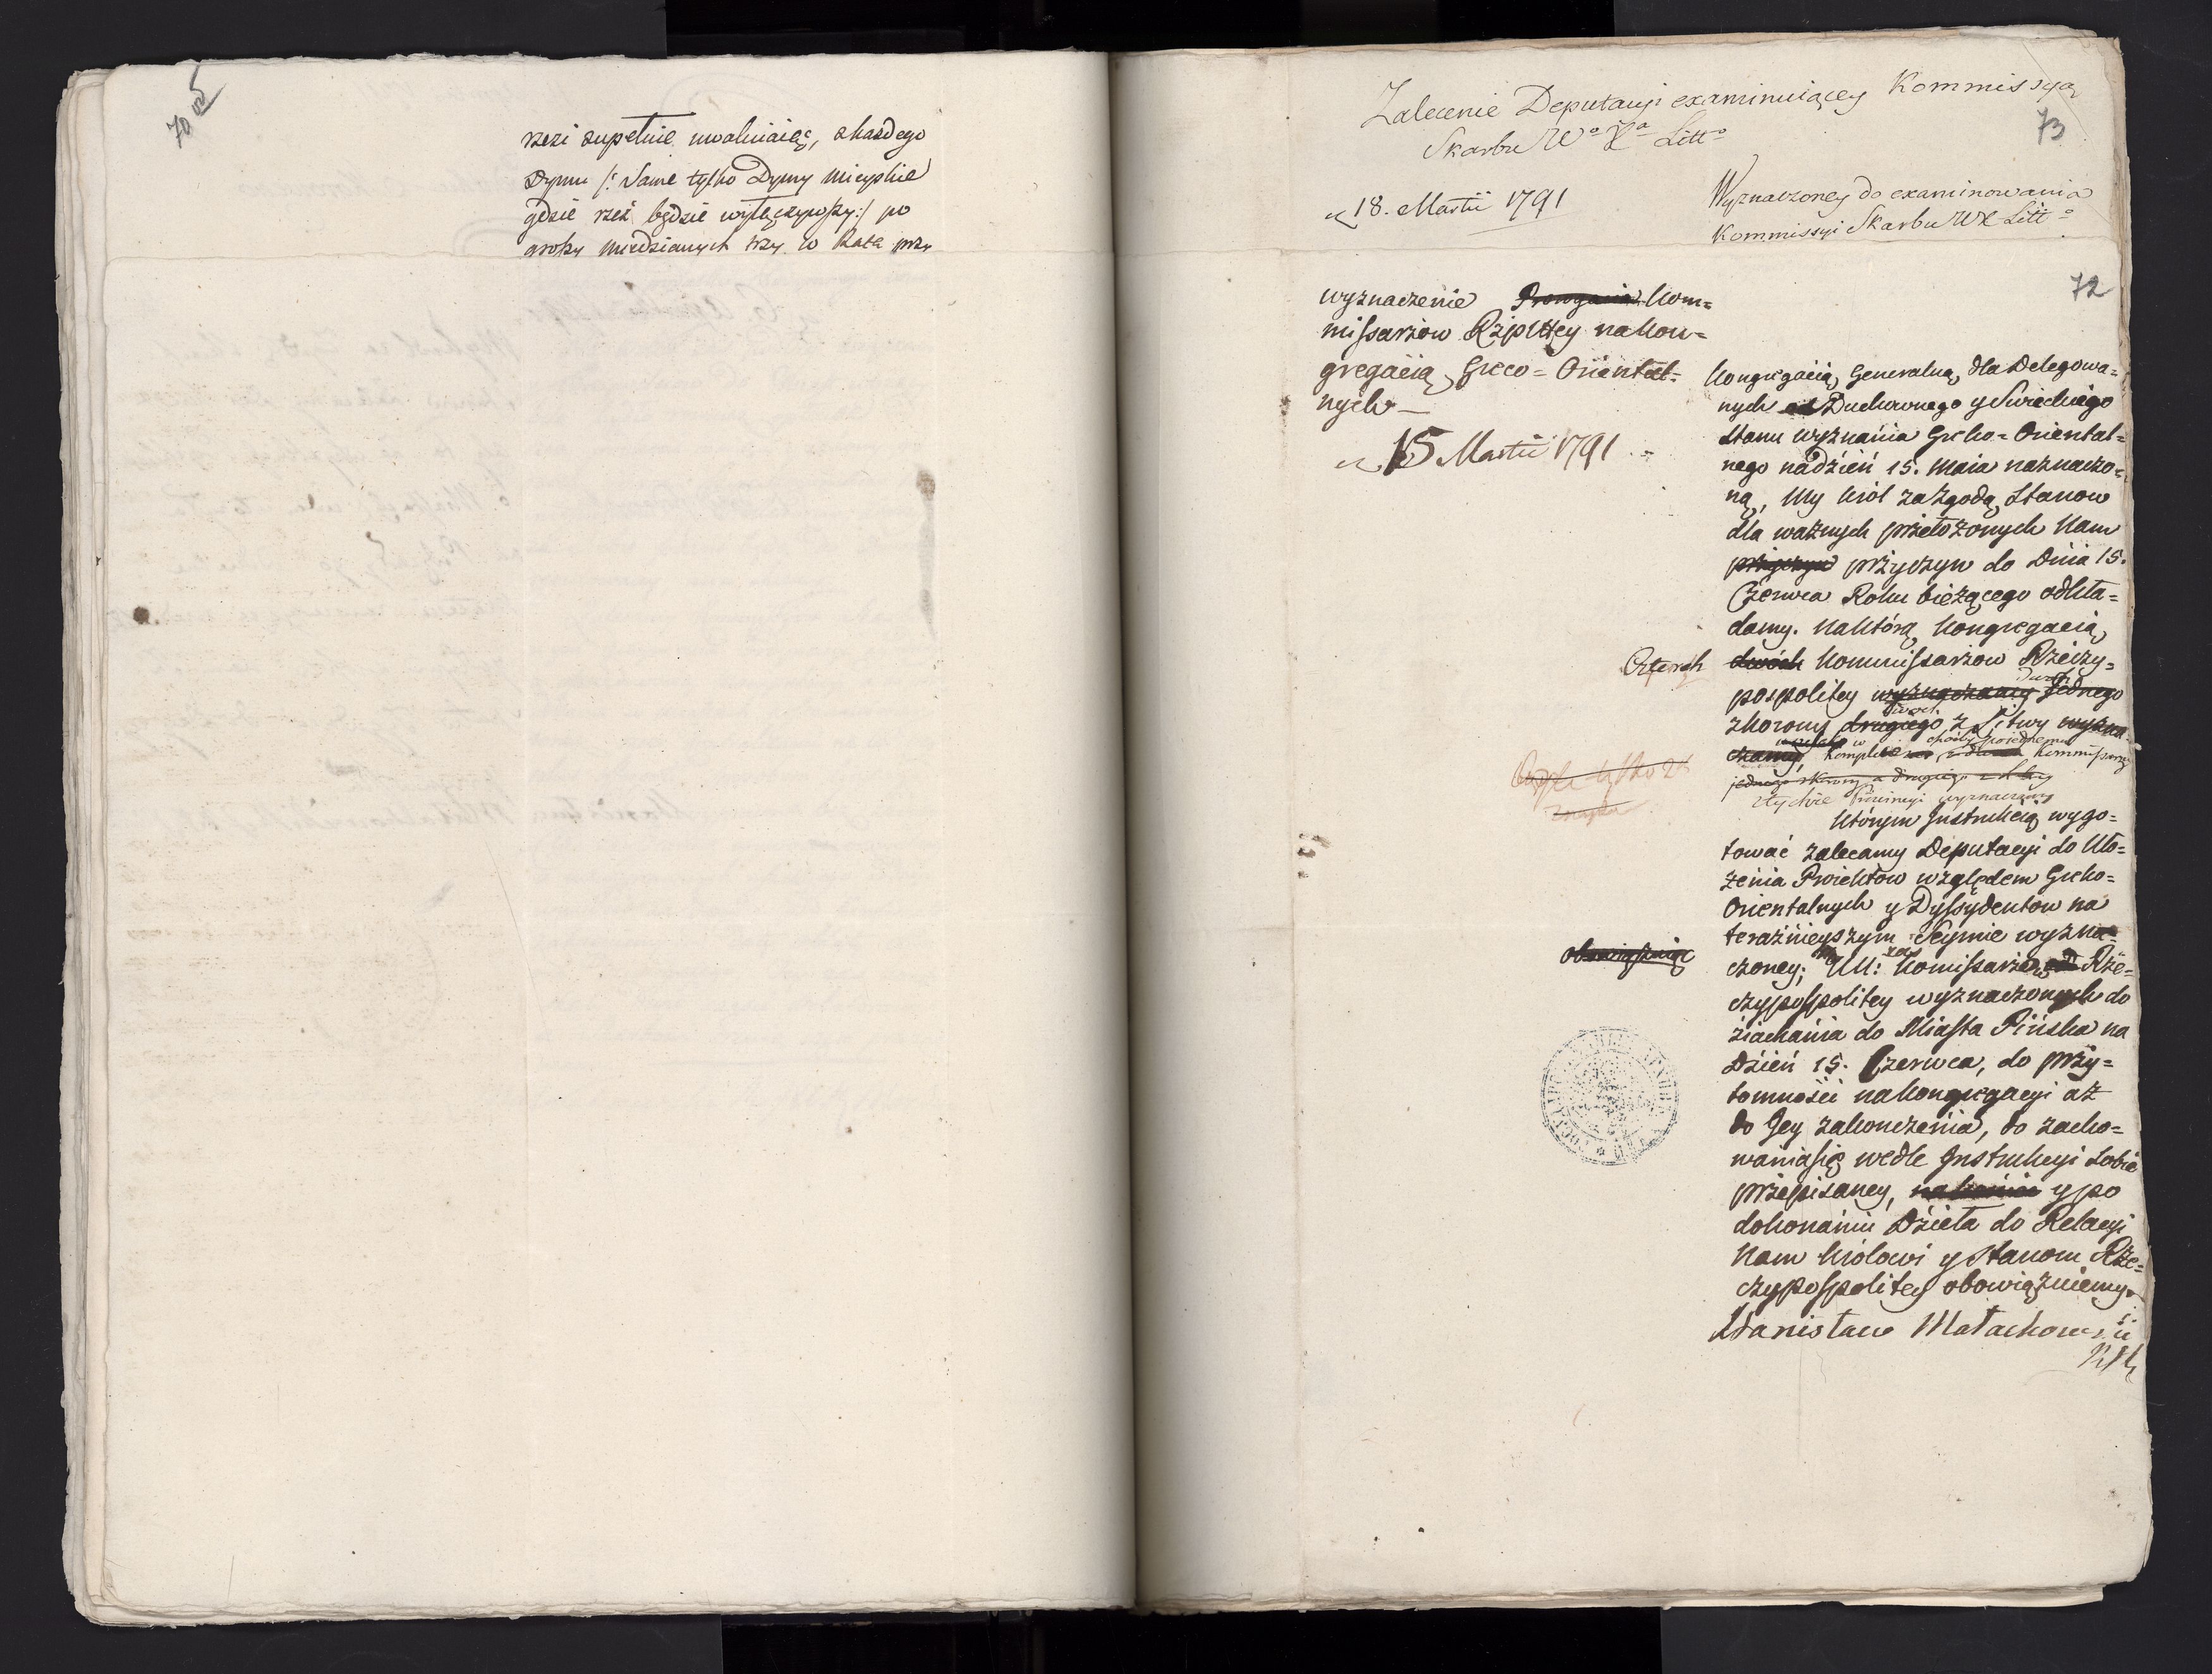 70 vs
rzezi zupełnie uwalniaiąc, z każdego
Dymu /: Same tylko Dymy mieyskie
gdzie rzeź będzie wyłączywszy :/ po
groszy miedzianych trzy w Ratę przy
Zalecenie Deputacyi examinuiącey Kommissyą
Skarbu Wo Xa Litto
73
18. Martii 1791
Wyznaczoney do examinowania
Kommissyi Skarbu WX Litto
72
wyznaczenie Kom=
missarzow Rzpltey na Kon=
gregacią Greco=Oriental=
nych
15 Martii 1791
Kongregacią Generalną, dla Delegowa=
nych od Duchownego y Swieckiego
Stanu wyznania Greko=Oriental=
nego na dzień 15. Maia naznaczo=
ną, My Król za zgodą Stanow
dla ważnych przełożonych Nam
przyczyn przyczyn do Dnia 15.
Czerwca Roku bieżącego odkła=
damy. Na którą Kongregacią
Czterech
dwóch Kommissarzow Rzeczy=
pospolitey wyznaczamy Jednego
dwóch
z Korony drugiego z Litwy wyzna=
czamy, Komplet Kommissarzy
jednego z Korony, a drugiego z Litwy
z tychże Prowincyi wyznaczamy
którym Instrukcią wygo=
tować zalecamy Deputacyi do Uło=
żenia Proiektow względem Greko=
Orientalnych y Dyssydentow na
teraźnieyszym Seymie wyzna=
obowiązuiąc
czoney; UU: Komissarzow od Rze=
czypospolitey wyznaczonych do
ziachania do Miasta Pińska na
Dzień 15. Czerwca, do przy=
tomności na Kongregacyi aż
do Jey zakończenia, do zacho=
wania się wedle Instrukcyi sobie
przepisaney, y po
dokonaniu Dzieła do Relacyi
Nam Królowi y Stanom Rze=
czypospolitey obowiązuiemy.
Stanisław Małachowski